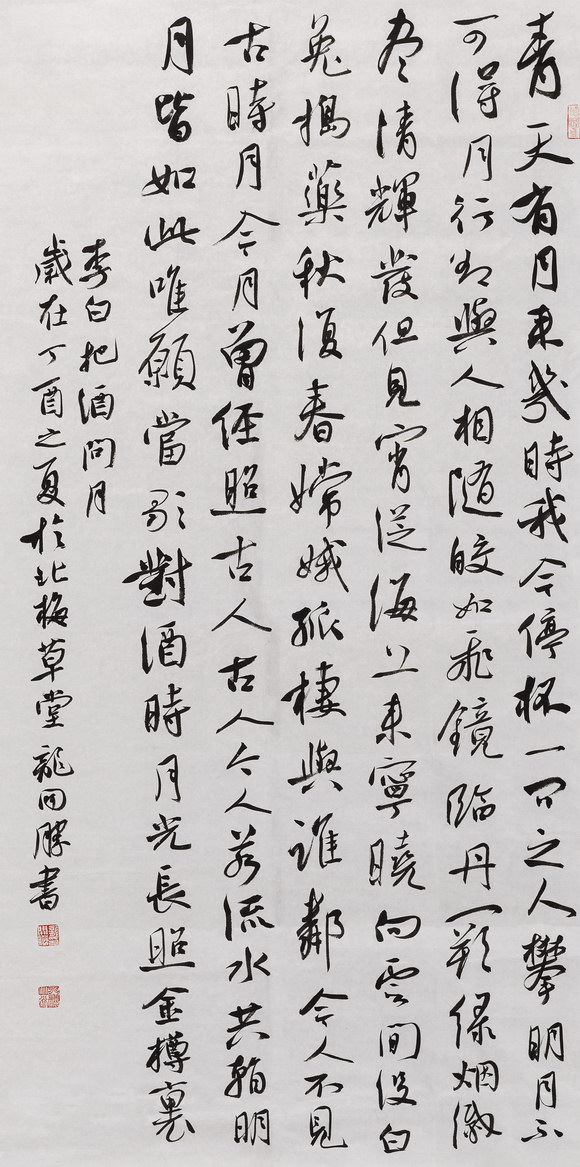 青天有月来幾時我今停杯一問之人攀明月不
可得月行却與人相随皎如飛鏡臨丹闕緑烟滅
盡清輝發但見宵從海上来寧曉向雲間没白
兔搗藥秋復春嫦娥孤棲與誰鄰今人不見
古時月今月曾經照古人古人今人若流水共看明
月皆如此唯願當歌對酒時月光長照金樽裏
李白把酒問月
歲在丁酉之夏於北梅草堂龍回勝書